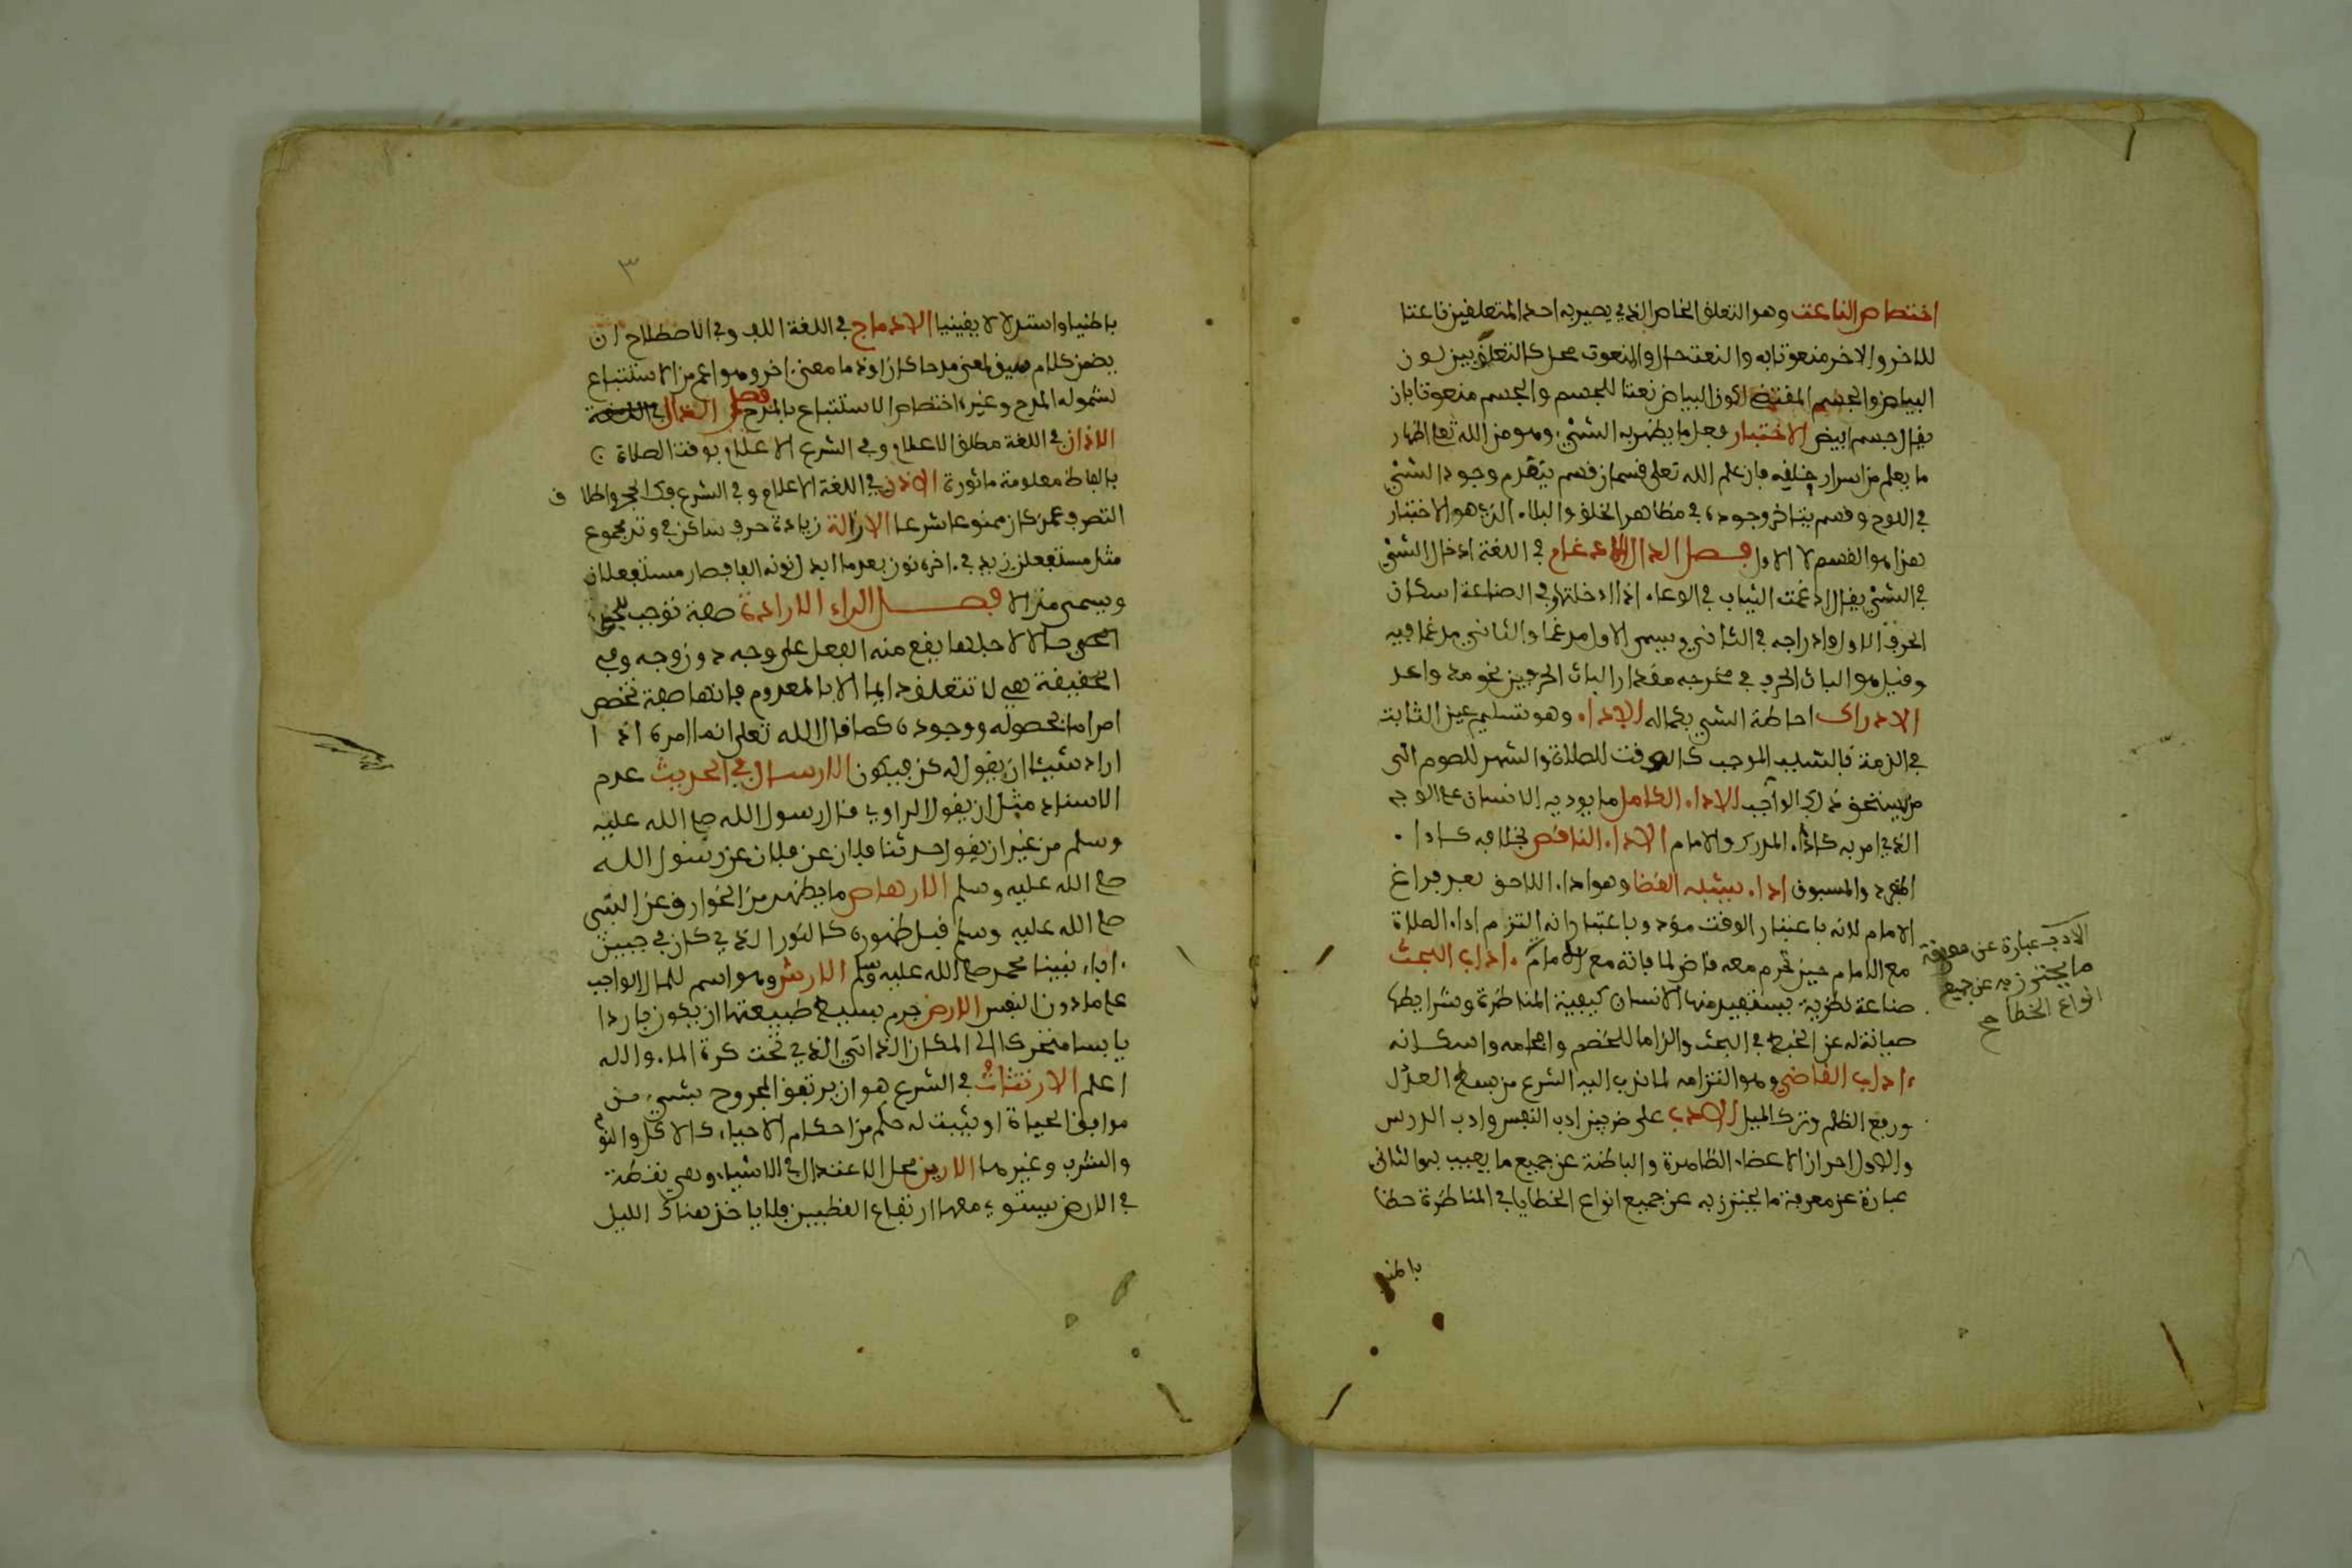 اختصاص الناعت وهو التعلق الخاص الذي يصير به احد المتعلقين ناعتا
للاخر والاخر منعوتا به والنعت حال والمنعوت محل كالتعلق بين لون
البياض والجسم المقتضي لكون البياض نعتا للجسم والجسم منعوتا بان
يقال جسم ابيض الاختبار فعل ما يظهر به الشيء وهو من الله تعا اظهار
ما يعلم من اسرار خلقه فان علم الله تعلى قسمان قسم يتقدم وجود الشيء
في اللوح وقسم يتاخر وجوده في مظاهر الخلق والبلاء الذي هو الاختبار
هذا هو القسم لا الاول فصل الدال الادغام في اللغة ادخال الشيء
في الشيء يقال ادغمت الثياب في الوعاء اذا ادخلتها وفي الصناعة اسكان
الحرف الاول وادراجه في الثاني ويسمى الاول مدغما والثاني مدغما فيه
وقيل هو الباث الحرف في مخرجه مقدار الباث الحرفين نحو مد واعد
الادراك احاطة الشيء بكماله الاداء وهو تسليم عين الثابت
في الذمة بالسبب الموجب كالوقت للصلاة والشهر للصوم الى
من يستحق ذلك الواجب الاداء الكامل ما يوديه الانسان على الوجه
الذي امر به كاداء المدرك والامام الاداء الناقص بخلافه كاداء
المنفرد والمسبوق اداء يشبه القضا وهو اداء اللاحق بعد فراغ
الامام لانه باعتبار الوقت مؤد وباعتبار انه التزم اداء الصلاة
مع الامام حين تحرم معه قاض لما فاته مع الامام اداب البحث
صناعة نظرية يستفيد منها الانسان كيفية المناظرة وشرايطها
صيانة له عن الخبط في البحث والزاما للخصم وافحامه واسكاته
اداب القاضي وهو التزامه لما ندب اليه الشرع من بسط العدل
ورفع الظلم وترك الميل الادب على ضربين ادب النفس وادب الدرس
والاول احراز الاعضاء الظاهرة والباطنة عن جميع ما يعيب به والثاني
عبارة عن معرفة ما يحترز به عن جميع انواع الخطايا في المناظرة خطا
الادب عبارة عن معرفة
ما يحترز به عن جميع
انواع الخطا صح
٣
باطنيا واستدلالا يقينيا الادماج في اللغة اللف وفي الاصطلاح ان
يضمن كلام سيق لمعنى مدحا كان او ذما معنى اخر وهو اعم من الاستتباع
لشموله المدح وغيره واختصاص الاستتباع بالمدح فصل الذال في اللغة
الاذان في اللغة مطلق الاعلام وفي الشرع الاعلام بوقت الصلاة
بالفاظ معلومة ماثورة الاذن في اللغة الاعلام وفي الشرع فك الحجر واطلاق
التصرف لمن كان ممنوعا شرعا الاذالة زيادة حرف ساكن في وتد مجموع
مثل مستفعلن زيد في اخره نون بعد ما ابدل نونه الفا فصار مستفعلان
ويسمى مذالا فصل الراء الارادة صفة توجب للحي
الحي حالا لاجلها يقع منه الفعل على وجه دون وجه وفي
الحقيقة هي لا تتعلق دايما الا بالمعدوم فانها صفة تخصص
امرا ما لحصوله ووجوده كما قال الله تعلى انما امره اذا
اراد شيئا ان يقول له كن فيكون الارسال في الحديث عدم
الاسناد مثل ان يقول الراوي قال رسول الله صلى الله عليه
وسلم من غير ان يقول حدثنا فلان عن فلان عن رسول الله
صلى الله عليه وسلم الارهاص ما يظهر من الخوارق عن النبي
صلى الله عليه وسلم قبل ظهوره كالنور الذي كان في جبين
اباء نبينا محمد صلى الله عليه وسلم الارش وهو اسم للمال الواجب
على ما دون النفس الارض جرم بسيط طبيعتها ان يكون باردا
يابسا متحركا الى المكان الذاتي الذي تحت كرة الماء والله
اعلم الارتثاث في الشرع هو ان يرتفق المجروح بشيء من
مرافق الحياة او يثبت له حكم من احكام الاحياء كالاكل والنوم
والشرب وغيرهما الارين محل الاعتدال في الاشياء وهي نقطة
في الارض يستوي معها ارتفاع القطبين فلا ياخذ هناك الليل